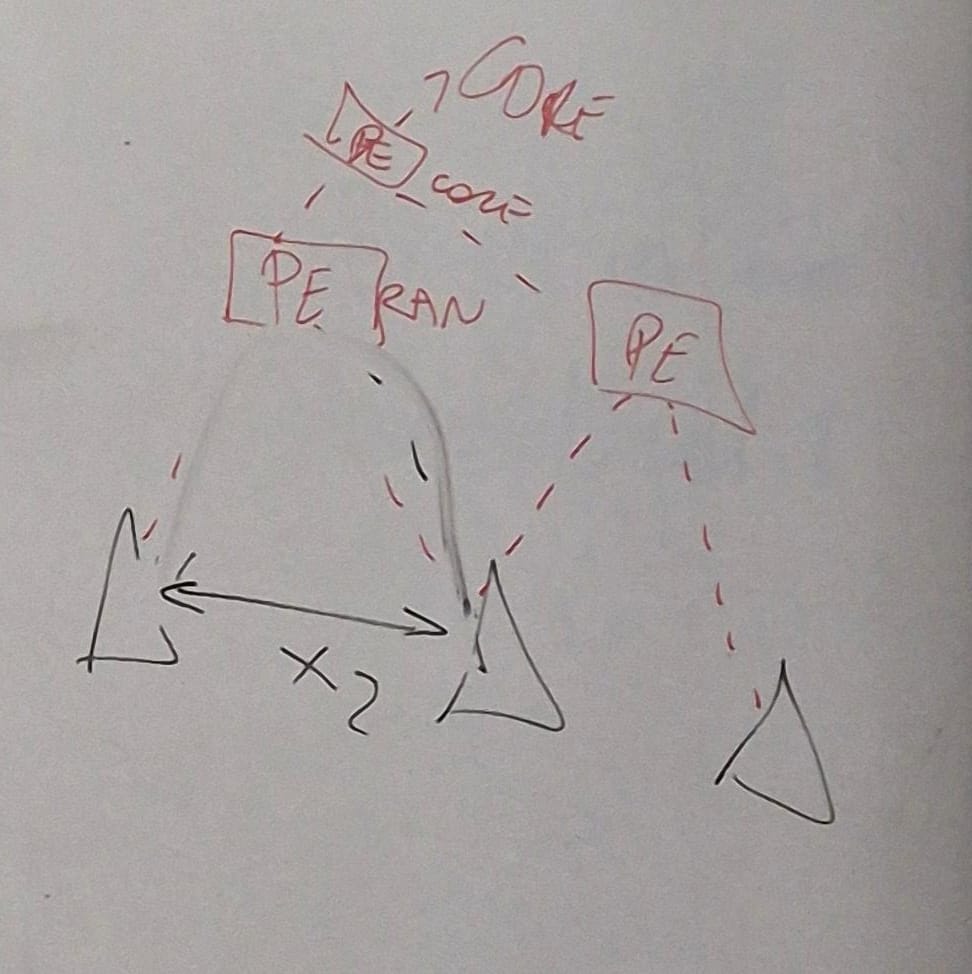 CORE
PE
CORE
PE RAN
PE
X2